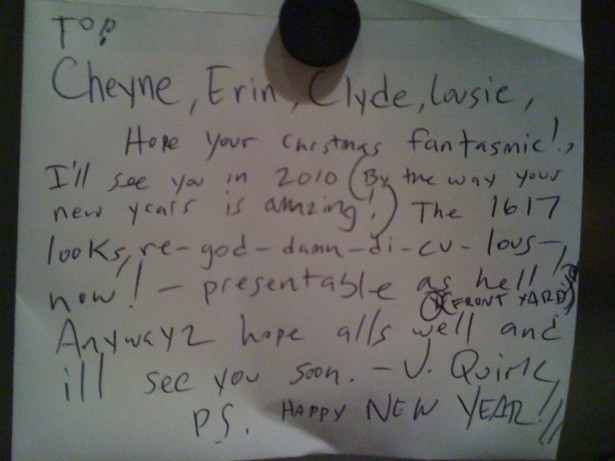 TOP
Cheyne, Erin, Clyde, Lousie,
Hope your chrstmas fantasmic!,
I'll see you in 2010 (By the way your
new years is amazing!) The 1617
looks, re-god-damn-di-cu-lous-,
now! - presentable as hell!
(FRONT YARD)
Anywayz hope alls well and
ill see you soon. - J. Quirk,
P.S. HAPPY NEW YEAR!!